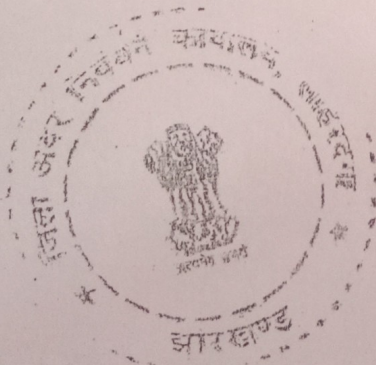 जिला अवर निबंधन कार्यालय, साहेबगंज
सत्यमेव जयते
झारखण्ड